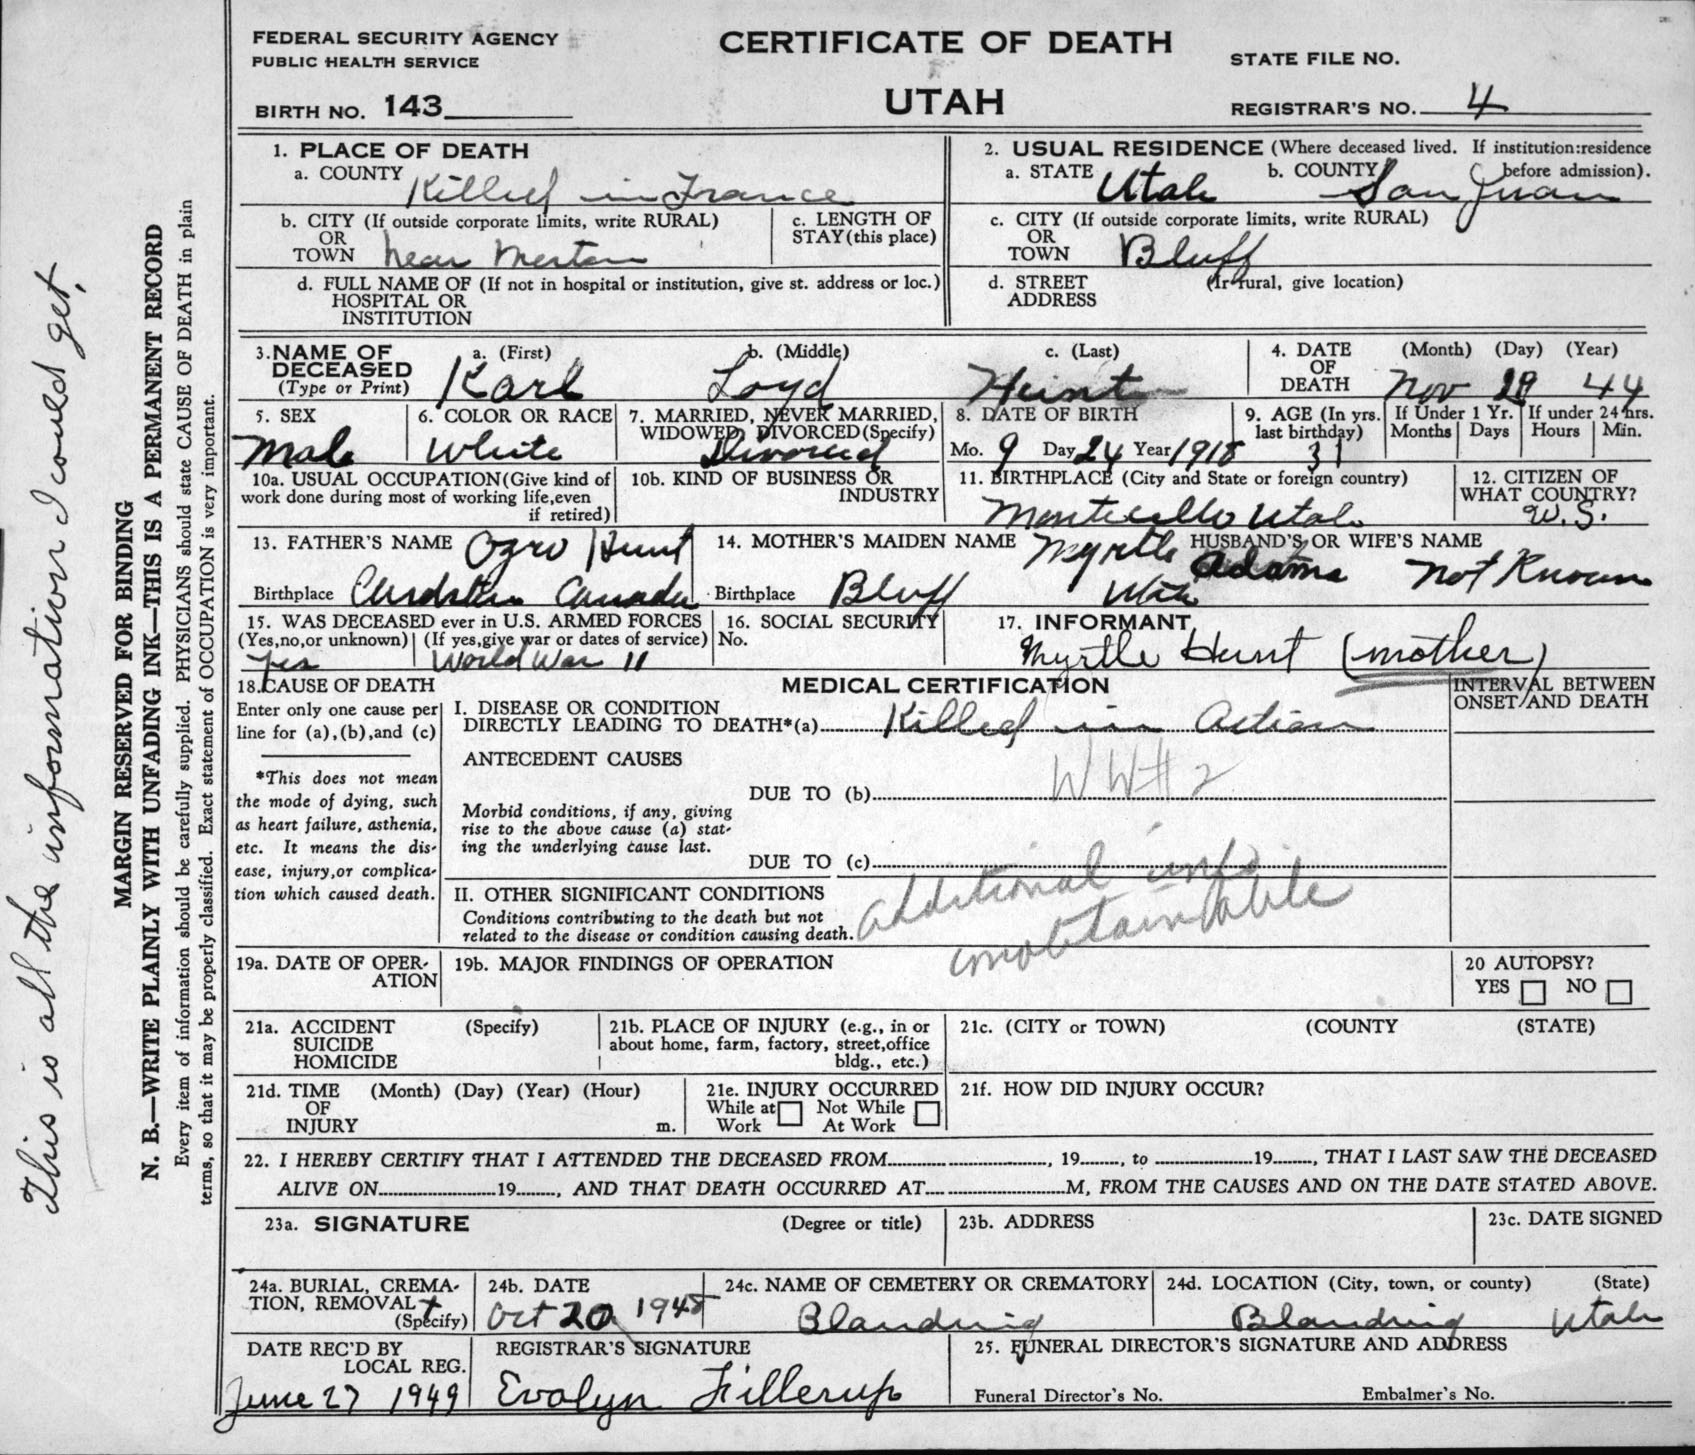 FEDERAL SECURITY AGENCY
PUBLIC HEALTH SERVICE
BIRTH NO. 143
CERTIFICATE OF DEATH
UTAH
STATE FILE NO.
REGISTRAR'S NO. 4
1. PLACE OF DEATH
a. COUNTY Killed in France
b. CITY (If outside corporate limits, write RURAL)
OR
TOWN near
c. LENGTH OF
STAY (this place)
d. FULL NAME OF (If not in hospital or institution, give st. address or loc.)
HOSPITAL OR
INSTITUTION
2. USUAL RESIDENCE (Where deceased lived. If institution:residence
before admission).
a. STATE Utah b. COUNTY San Juan
c. CITY (If outside corporate limits, write RURAL)
OR
TOWN Bluff
d. STREET (If rural, give location)
ADDRESS
3. NAME OF DECEASED (Type or Print)
a. (First) b. (Middle) c. (Last)
Karl Loyd Hunt
4. DATE OF DEATH (Month) (Day) (Year)
Nov 44
5. SEX
Male
6. COLOR OR RACE
White
7. MARRIED, NEVER MARRIED,
WIDOWED, DIVORCED (Specify)
Divorced
8. DATE OF BIRTH
Mo. 9 Day 24 Year 1918
9. AGE (In yrs.
last birthday)
31
If Under 1 Yr. If under 24 hrs.
Months Days Hours Min.
10a. USUAL OCCUPATION(Give kind of
work done during most of working life,even
if retired)
10b. KIND OF BUSINESS OR
INDUSTRY
11. BIRTHPLACE (City and State or foreign country)
Monticello Utah
12. CITIZEN OF
WHAT COUNTRY?
U.S.
13. FATHER'S NAME Hunt
Birthplace Canada
14. MOTHER'S MAIDEN NAME Myrtle Adams
Birthplace Bluff Utah
HUSBAND'S OR WIFE'S NAME
Not Known
15. WAS DECEASED ever in U.S. ARMED FORCES
(Yes,no,or unknown) (If yes,give war or dates of service)
Yes World War II
16. SOCIAL SECURITY
No.
17. INFORMANT
Myrtle Hunt (mother)
18. CAUSE OF DEATH
Enter only one cause per
line for (a),(b),and (c)
*This does not mean
the mode of dying, such
as heart failure, asthenia,
etc. It means the dis-
ease, injury,or complica-
tion which caused death.
MEDICAL CERTIFICATION
INTERVAL BETWEEN
ONSET AND DEATH
I. DISEASE OR CONDITION
DIRECTLY LEADING TO DEATH*(a) Killed in Action
ANTECEDENT CAUSES
WW#2
DUE TO (b)
Morbid conditions, if any, giving
rise to the above cause (a) stat-
ing the underlying cause last.
DUE TO (c)
II. OTHER SIGNIFICANT CONDITIONS
Conditions contributing to the death but not
related to the disease or condition causing death.
additional info
unobtainable
19a. DATE OF OPER-
ATION
19b. MAJOR FINDINGS OF OPERATION
20 AUTOPSY?
YES NO
21a. ACCIDENT (Specify)
SUICIDE
HOMICIDE
21b. PLACE OF INJURY (e.g., in or
about home, farm, factory, street,office
bldg., etc.)
21c. (CITY or TOWN) (COUNTY (STATE)
21d. TIME (Month) (Day) (Year) (Hour)
OF
INJURY m.
21e. INJURY OCCURRED
While at Not While
Work At Work
21f. HOW DID INJURY OCCUR?
22. I HEREBY CERTIFY THAT I ATTENDED THE DECEASED FROM, 19, to 19, THAT I LAST SAW THE DECEASED
ALIVE ON 19, AND THAT DEATH OCCURRED AT M, FROM THE CAUSES AND ON THE DATE STATED ABOVE.
23a. SIGNATURE (Degree or title)
23b. ADDRESS
23c. DATE SIGNED
24a. BURIAL, CREMA-
TION, REMOVAL
(Specify)
24b. DATE
Oct 20 1948
24c. NAME OF CEMETERY OR CREMATORY
Blanding
24d. LOCATION (City, town, or county) (State)
Blanding Utah
DATE REC'D BY
LOCAL REG.
June 27 1949
REGISTRAR'S SIGNATURE
Evolyn Fillerup
25. FUNERAL DIRECTOR'S SIGNATURE AND ADDRESS
Funeral Director's No. Embalmer's No.
This is all the information I could get.
MARGIN RESERVED FOR BINDING
N. B.—WRITE PLAINLY WITH UNFADING INK—THIS IS A PERMANENT RECORD
Every item of information should be carefully supplied. PHYSICIANS should state CAUSE OF DEATH in plain
terms, so that it may be properly classified. Exact statement of OCCUPATION is very important.